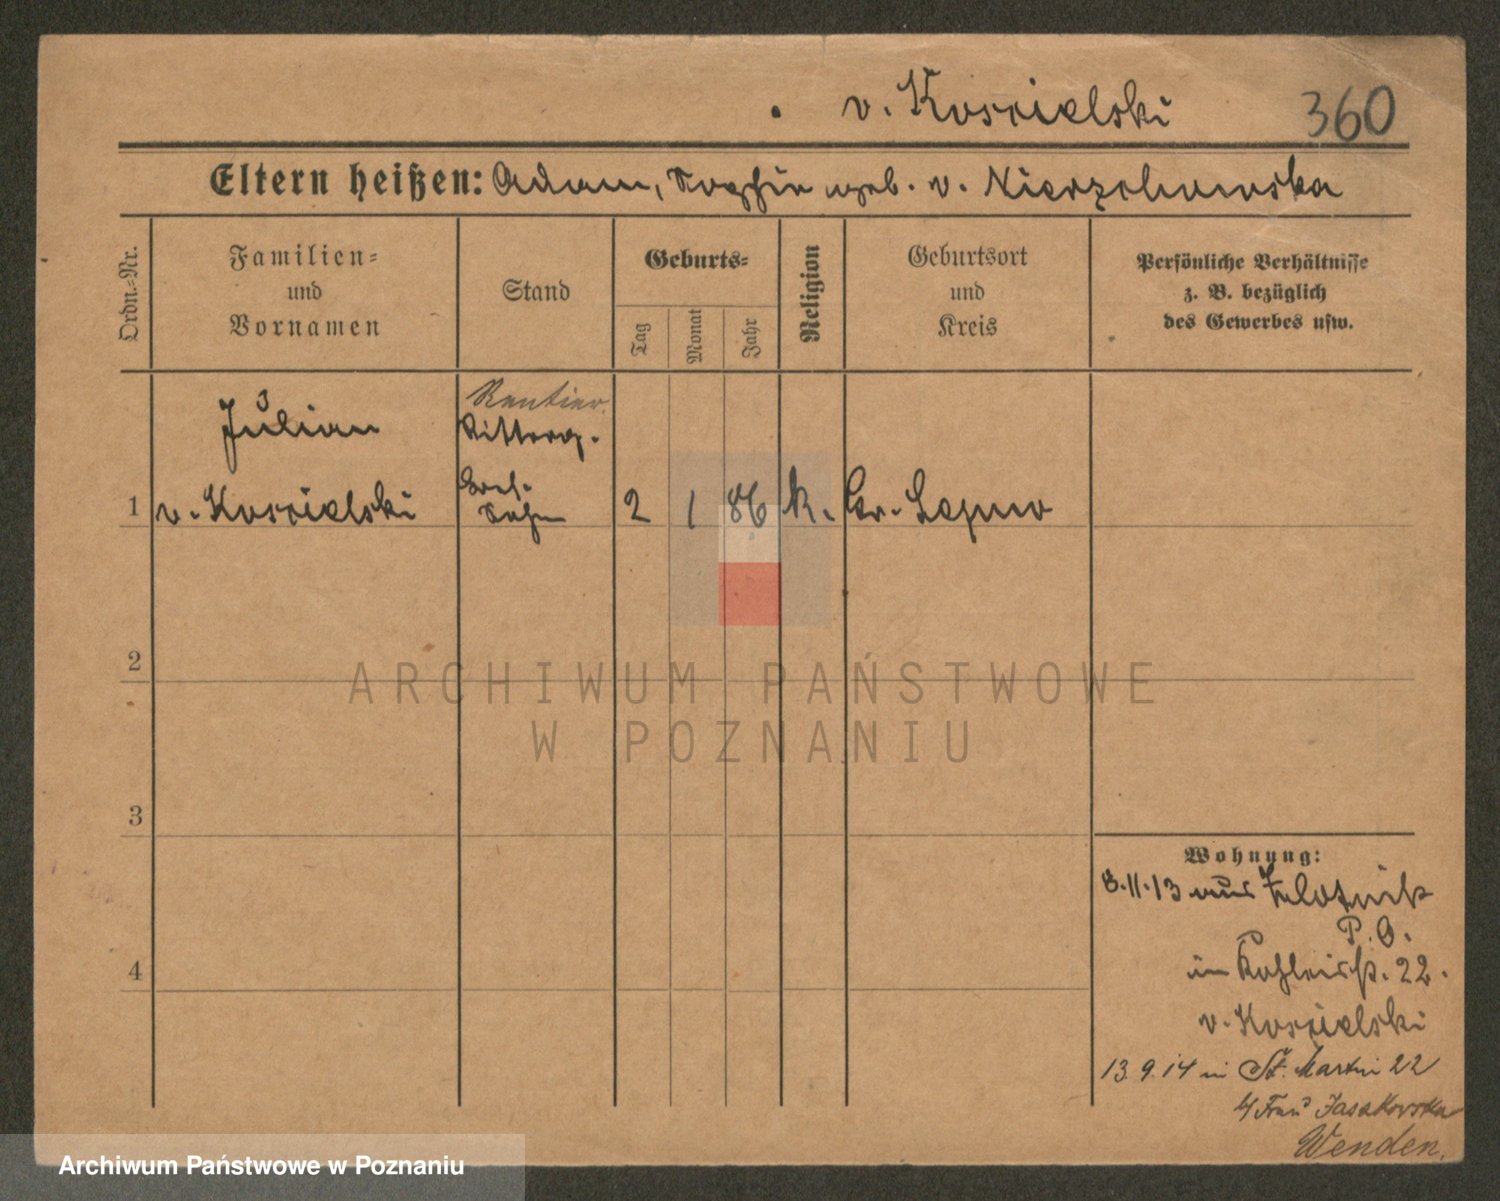 v. Kościelski 360
Eltern heißen: Adam, Sophie geb. v. Nierzchowska
Ordn.-Nr.
Familien-
und
Vornamen
Stand
Geburts-
Tag
Monat
Jahr
Religion
Geburtsort
und
Kreis
Persönliche Verhältnisse
z. B. bezüglich
des Gewerbes usw.
Rentier
Julian
Ritterg.
Bes.
1 v. Kościelski Sohn 2 1 86 k. Gr. Lepno
2
ARCHIWUM PAŃSTWOWE
W POZNANIU
3
4
Wohnung:
8.11.13 aus Zlotnik
P.O.
in 22.
v. Kościelski
13.9.14 in St. Martin 22
b/ Frau Jasakowska
Wenden.
Archiwum Państwowe w Poznaniu